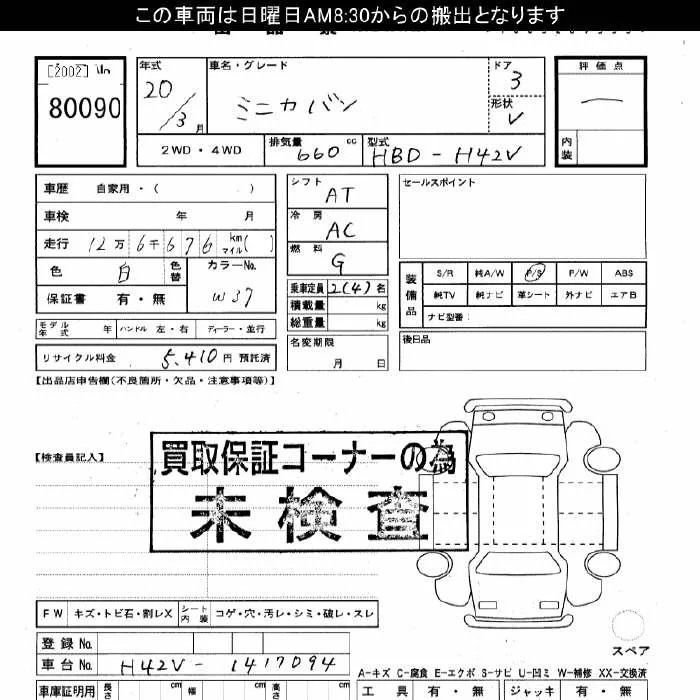 この車両は日曜日AM8:30からの搬出となります
[2002]
80090
年式 車名・グレード ドア 評価点
20/3月 ミニカバン 3 一
形状 V
2WD・4WD 排気量 660 cc 型式 HBD-H42V 内装
車歴 自家用・( )
車検 年 月
走行 12万6千676 km マイル( )
色 白 色替 カラーNo. W37
保証書 有・無
モデル年式 年 ハンドル 左・右 ディーラー・並行
リサイクル料金 5,410円 預託済
シフト AT
冷房 AC
燃料 G
乗車定員 2(4)名
積載量 kg
総重量 kg
名変期限 月 日
セールスポイント
装備品 S/R 純A/W P/S P/W ABS
純TV 純ナビ 革シート 外ナビ エアB
ナビ型番:
後日品
【出品店申告欄(不良箇所・欠品・注意事項等)】
【検査員記入】
買取保証コーナーの為
未検査
FW キズ・トビ石・割レX シート内装 コゲ・穴・汚レ・シミ・破レ・スレ
登録No.
車台No. H42V-1417094
スペア
A-キズ C-腐食 E-エクボ S-サビ U-凹ミ W-補修 XX-交換済
車庫証明用 長さ cm 幅 cm 高さ cm 工具 有・無 ジャッキ 有・無